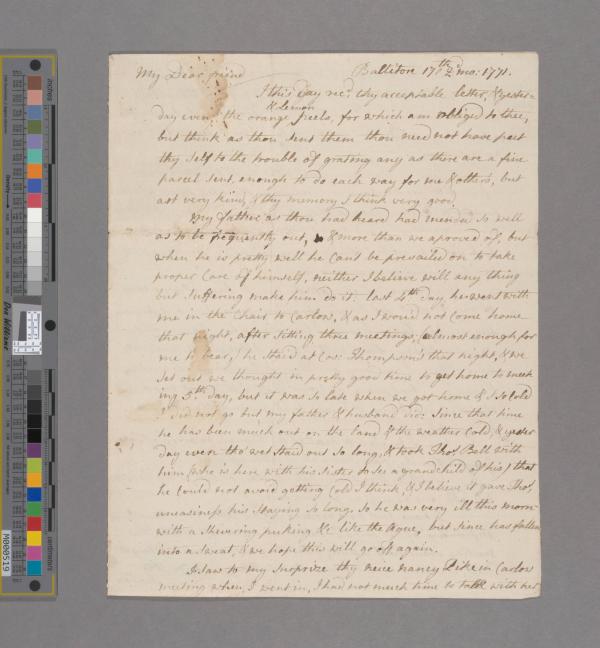 My Dear friend
Ballitore 17th 2d mo: 1771.
I this day recd thy acceptable letter, & yester=
& Lemon
day even the orange peels, for which am obliged to thee,
but think as thou sent them thou need not have put
thy self to the trouble of grating any as there are a fine
parcel sent, enough to do each way for me & others, but
art very kind, & thy memory I think very good.
My father as thou had heard had mended so well
as to be frequently out, & more than we aproved of, but
when he is pretty well he cant be prevailed on to take
proper Care of himself, neither I believe will any thing
but suffering make him do it: last 4th day, he went with
me in the Chair to Carlow, & as I would not come home
that night, after sitting three meetings, (almost enough for
me to bear,) he staid at Cos: Thompsons that night, & we
set out we thought in pretty good time to get home to meet
ing 5th day, but it was so late when we got home & I so Cold
I did not go but my father & husband did: Since that time
he has been much out on the land & the weather Cold, & yester
day even tho' wet staid out so long, & took Thos. Bell with
him (who is here with his Sister to see a grandchild of his) that
he could not avoid getting Cold I think, & I believe it gave Thos.
uneasiness his staying so long. So he was very ill this morn
with a shivering puking &c like the Ague, but since has fallen
into a sweat, & we hope this will go off again.
I saw to my surprize thy neice nancy Pike in Carlow
meeting when I went in, I had not much time to talk with her
inches
Density
Don Williams
M000519